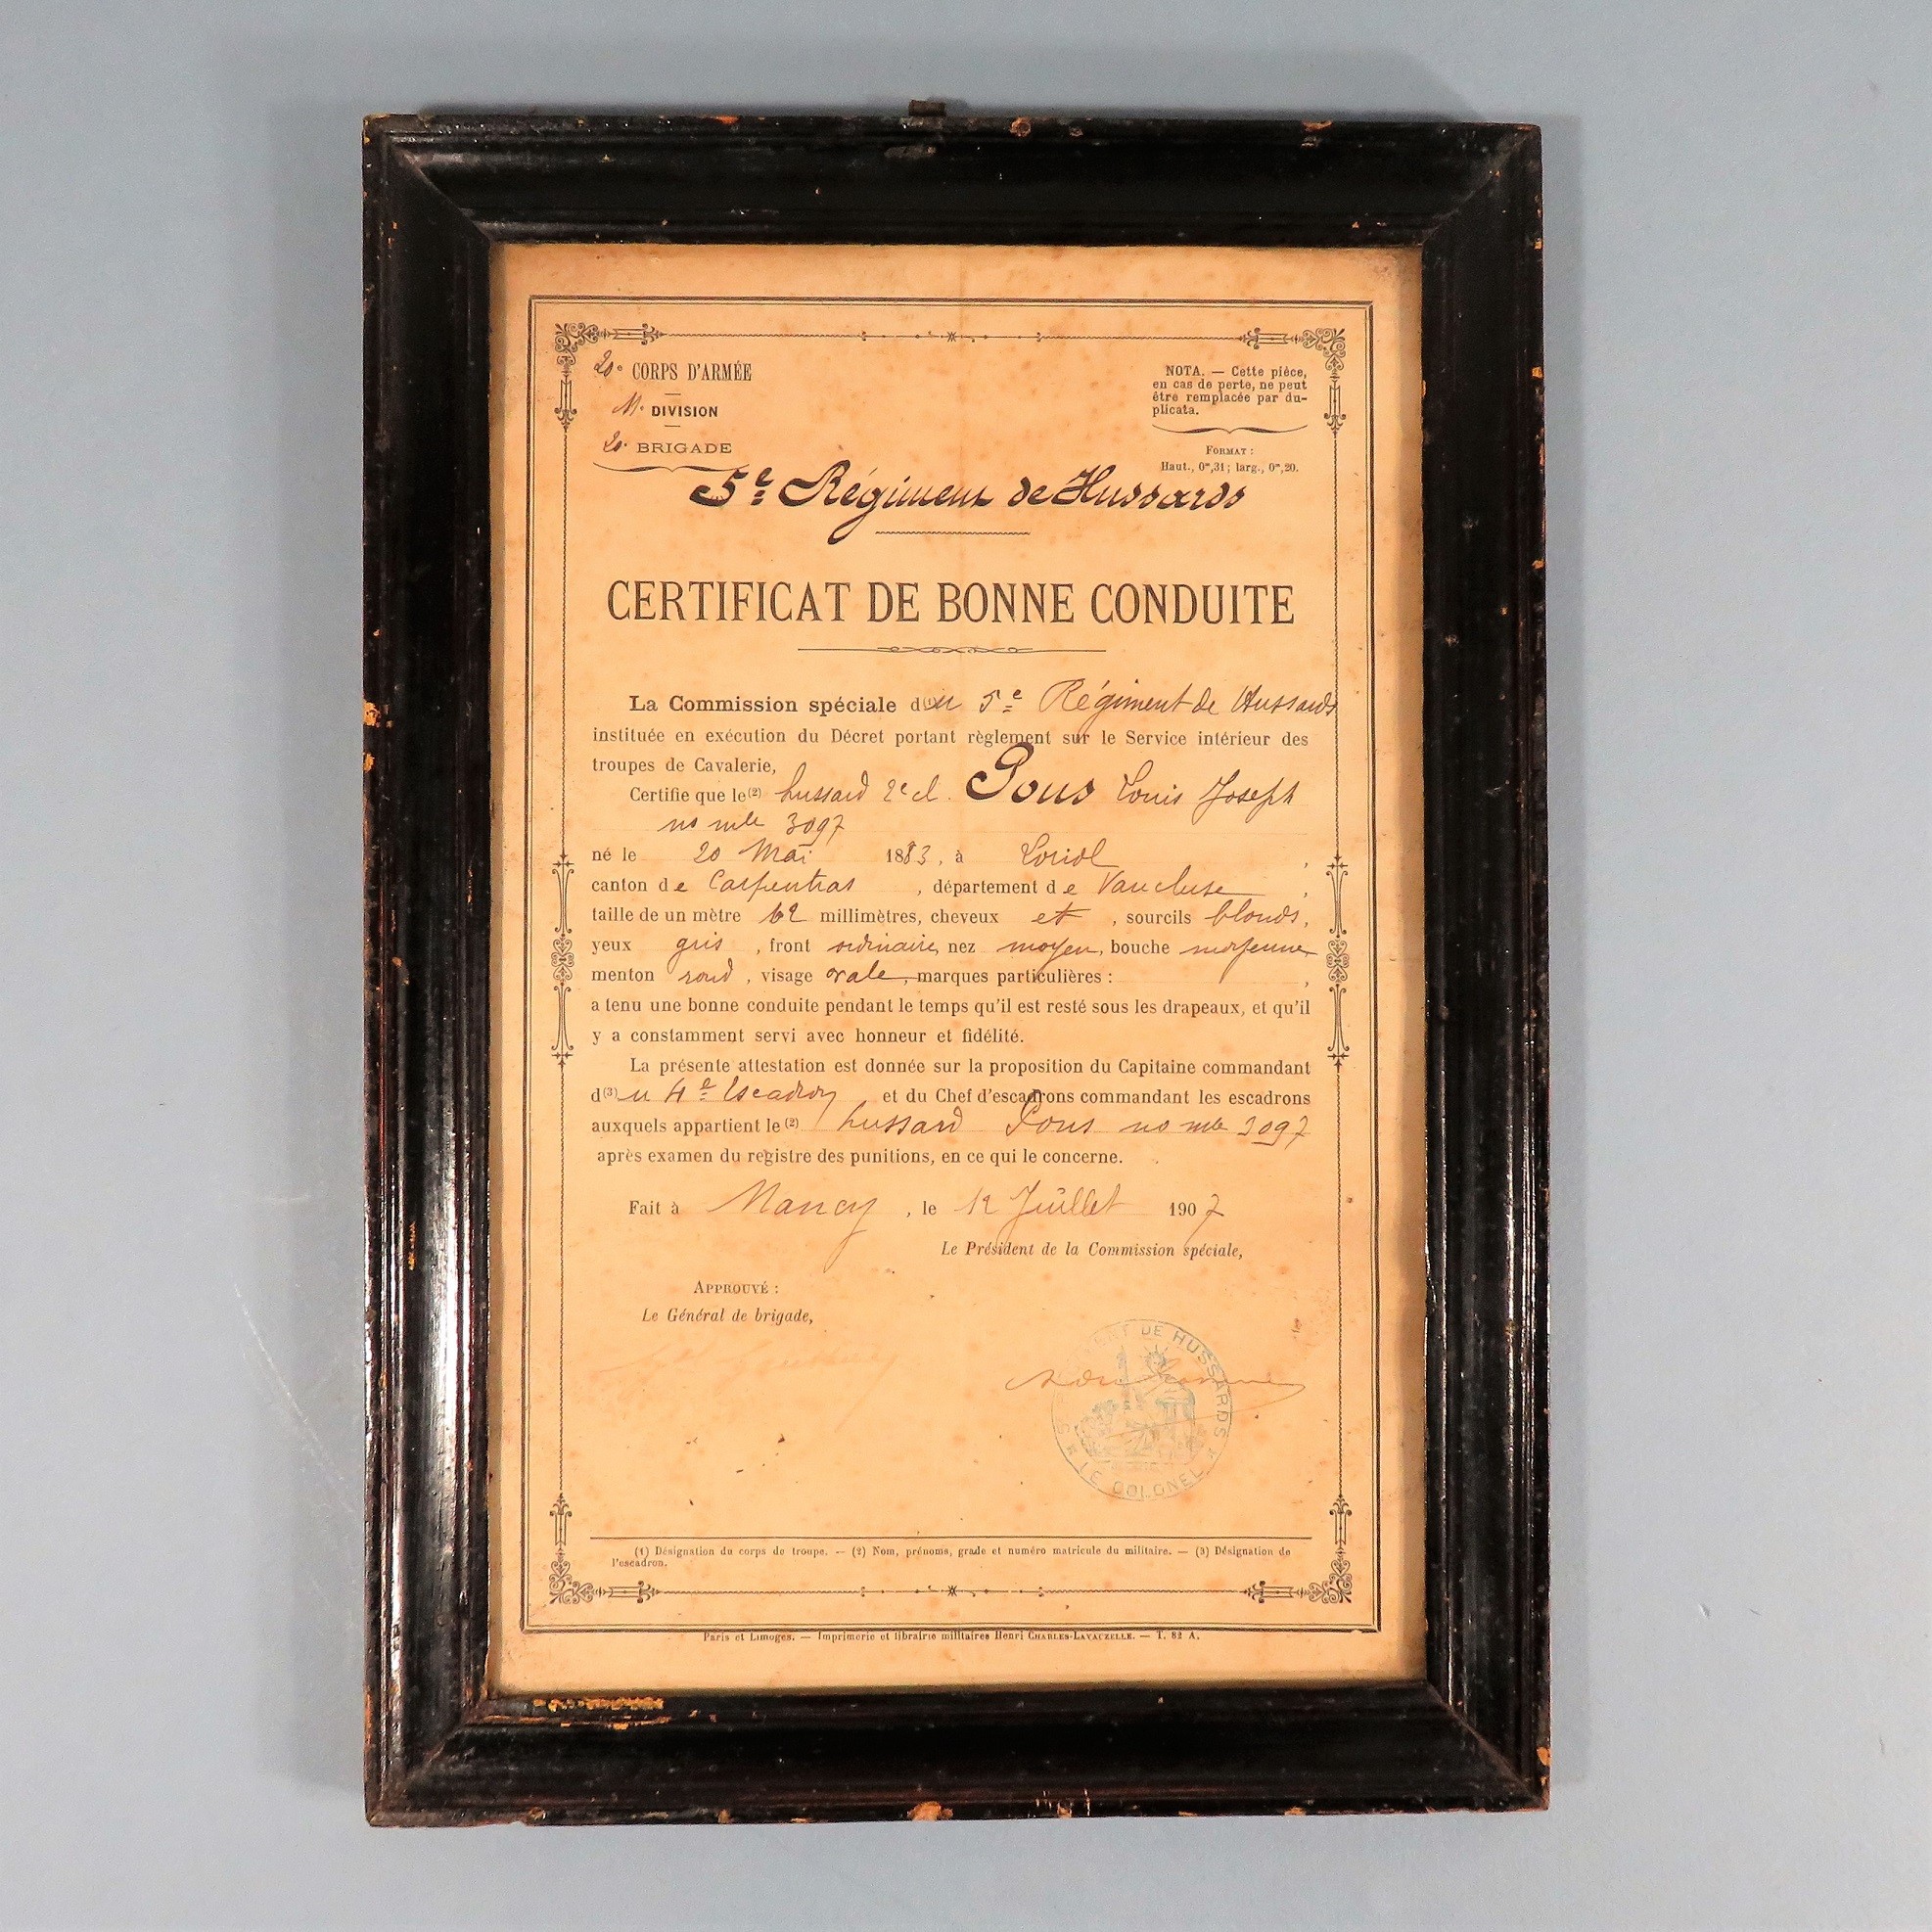 20e CORPS D'ARMÉE
11e DIVISION
20e BRIGADE
NOTA. — Cette pièce,
en cas de perte, ne peut
être remplacée par du-
plicata.
FORMAT :
Haut., 0m,31; larg., 0m,20.
5e Régiment de Hussards
CERTIFICAT DE BONNE CONDUITE
La Commission spéciale d(1)u 5e Régiment de Hussards
instituée en exécution du Décret portant règlement sur le Service intérieur des
troupes de Cavalerie,
Certifie que le (2) hussard 2e cl. Pous Louis Joseph
no mle 3097
né le 20 Mai 1883, à Loriol,
canton de Carpentras, département de Vaucluse,
taille de un mètre 62 millimètres, cheveux et, sourcils blonds,
yeux gris, front ordinaire, nez moyen, bouche moyenne
menton rond, visage ovale, marques particulières : ,
a tenu une bonne conduite pendant le temps qu'il est resté sous les drapeaux, et qu'il
y a constamment servi avec honneur et fidélité.
La présente attestation est donnée sur la proposition du Capitaine commandant
d(3)u 4e Escadron et du Chef d'escadrons commandant les escadrons
auxquels appartient le (2) hussard Pous no mle 3097
après examen du registre des punitions, en ce qui le concerne.
Fait à Nancy, le 12 Juillet 1907
Le Président de la Commission spéciale,
APPROUVÉ :
Le Général de brigade,
DE HUSSARDS
LE COLONEL
(1) Désignation du corps de troupe. — (2) Nom, prénoms, grade et numéro matricule du militaire. — (3) Désignation de
l'escadron.
Paris et Limoges. — Imprimerie et librairie militaires Henri CHARLES-LAVAUZELLE. — T. 82 A.